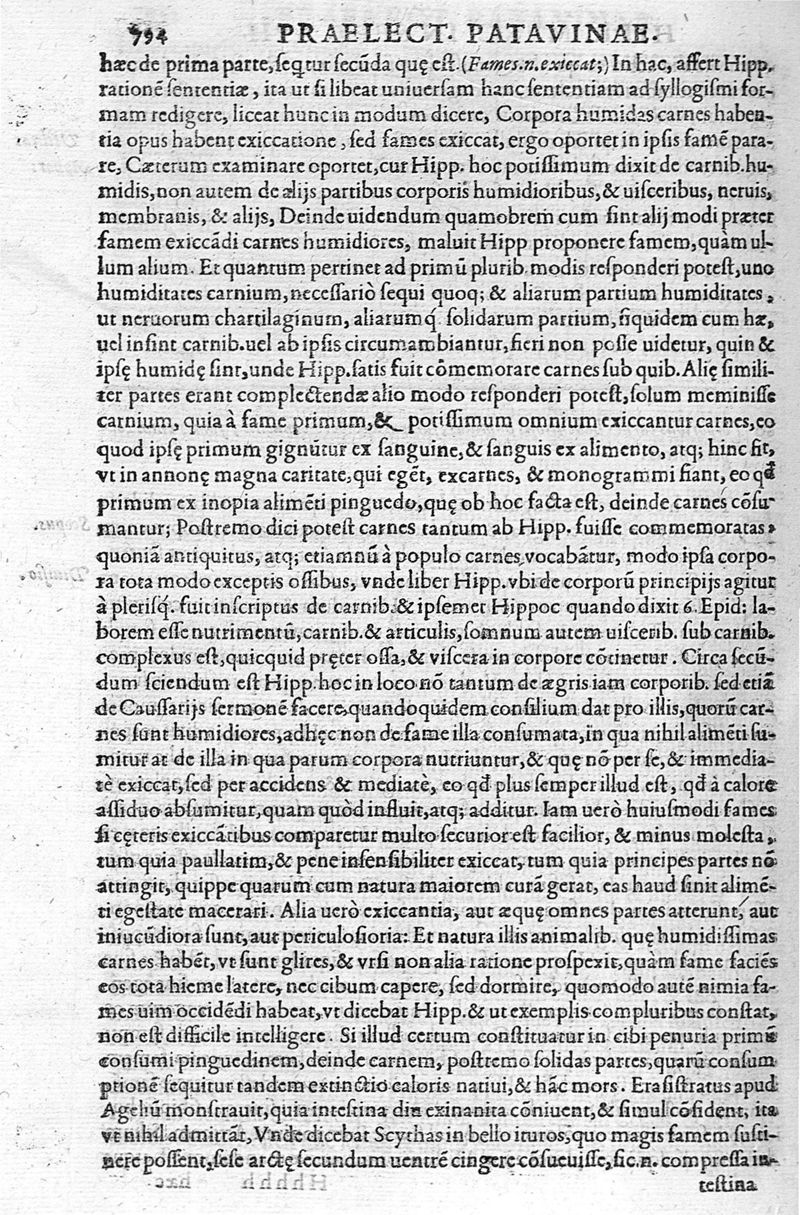 794 PRAELECT. PATAVINAE.
hæc de prima parte, seq̃tur secũda quę est. (Fames.n.exiccat;) In hac, affert Hipp.
rationẽ sententiæ, ita ut si libeat uniuersam hanc sententiam ad syllogismi for-
mam redigere, liceat hunc in modum dicere, Corpora humidas carnes haben-
tia opus habent exiccatione, sed fames exiccat, ergo oportet in ipsis famẽ para-
re, Cæterum examinare oportet, cur Hipp. hoc potissimum dixit de carnib. hu-
midis, non autem de alijs partibus corporis humidioribus, & uisceribus, neruis,
membranis, & alijs, Deinde uidendum quamobrem cum sint alij modi præter
famem exiccãdi carnes humidiores, maluit Hipp proponere famem, quàm ul-
lum alium. Et quantum pertinet ad primũ plurib. modis responderi potest, uno
humiditates carnium, necessariò sequi quoq; & aliarum partium humiditates,
ut neruorum chartilaginum, aliarumq́ solidarum partium, siquidem cum hæ,
uel insint carnib. uel ab ipsis circumambiantur, fieri non posse uidetur, quin &
ipsę humidę sint, unde Hipp. satis fuit cõmemorare carnes sub quib. Alię simili-
ter partes erant complectendæ alio modo responderi potest, solum meminisse
carnium, quia à fame primum, & potissimum omnium exiccantur carnes, eo
quod ipsę primum gignũtur ex sanguine, & sanguis ex alimento, atq; hinc fit,
vt in annonę magna caritate, qui egẽt, excarnes, & monogrammi fiant, eo qđ
primum ex inopia alimẽti pinguedo, quę ob hoc facta est, deinde carnes cõsu-
mantur; Postremo dici potest carnes tantum ab Hipp. fuisse commemoratas,
quoniã antiquitus, atq; etiamnũ à populo carnes vocabãtur, modo ipsa corpo-
ra tota modo exceptis ossibus, vnde liber Hipp. vbi de corporũ principijs agitur
à plerisq́. fuit inscriptus de carnib. & ipsemet Hippoc quando dixit 6. Epid: la-
borem esse nutrimentũ, carnib. & articulis, somnum autem uiscerib. sub carnib.
complexus est, quicquid pręter ossa, & viscera in corpore cõtinetur. Circa secũ-
dum sciendum est Hipp. hoc in loco nõ tantum de ægris iam corporib. sed etiã
de Caussarijs sermonẽ facere, quandoquidem consilium dat pro illis, quorũ car-
nes sunt humidiores, adhęc non de fame illa consumata, in qua nihil alimẽti su-
mitur at de illa in qua parum corpora nutriuntur, & quę nõ per se, & immedia-
tè exiccat, sed per accidens & mediatè, eo qđ plus semper illud est, qđ à calore
assiduo absumitur, quam quòd influit, atq; additur. Iam uerò huiusmodi fames
si cęteris exiccãtibus comparetur multo securior est facilior, & minus molesta,
tum quia paullatim, & pene insensibiliter exiccat, tum quia principes partes nõ
attingit, quippe quarum cum natura maiorem curã gerat, eas haud sinit alimẽ-
ti egestate macerari. Alia uerò exiccantia, aut æquę omnes partes atterunt, aut
iniucũdiora sunt, aut periculosiora: Et natura illis animalib. quę humidissimas
carnes habẽt, vt sunt glires, & vrsi non alia ratione prospexit, quàm fame faciẽs
eos tota hieme latere, nec cibum capere, sed dormire, quomodo autẽ nimia fa-
mes uim occidẽdi habeat, vt dicebat Hipp. & ut exemplis compluribus constat,
non est difficile intelligere. Si illud certum constituatur in cibi penuria primũ
consumi pinguedinem, deinde carnem, postremo solidas partes, quarũ consum
ptionẽ sequitur tandem extinctio caloris natiui, & hãc mors. Erasistratus apud
Ageliũ monstrauit, quia intestina diu exinanita cõniuent, & simul cõsident, ita
vt nihil admittãt, Vnde dicebat Scythas in bello ituros, quo magis famem susti-
nere possent, sese arctę secundum uentrẽ cingere cõsueuisse, sic.n. compressa in-
testina